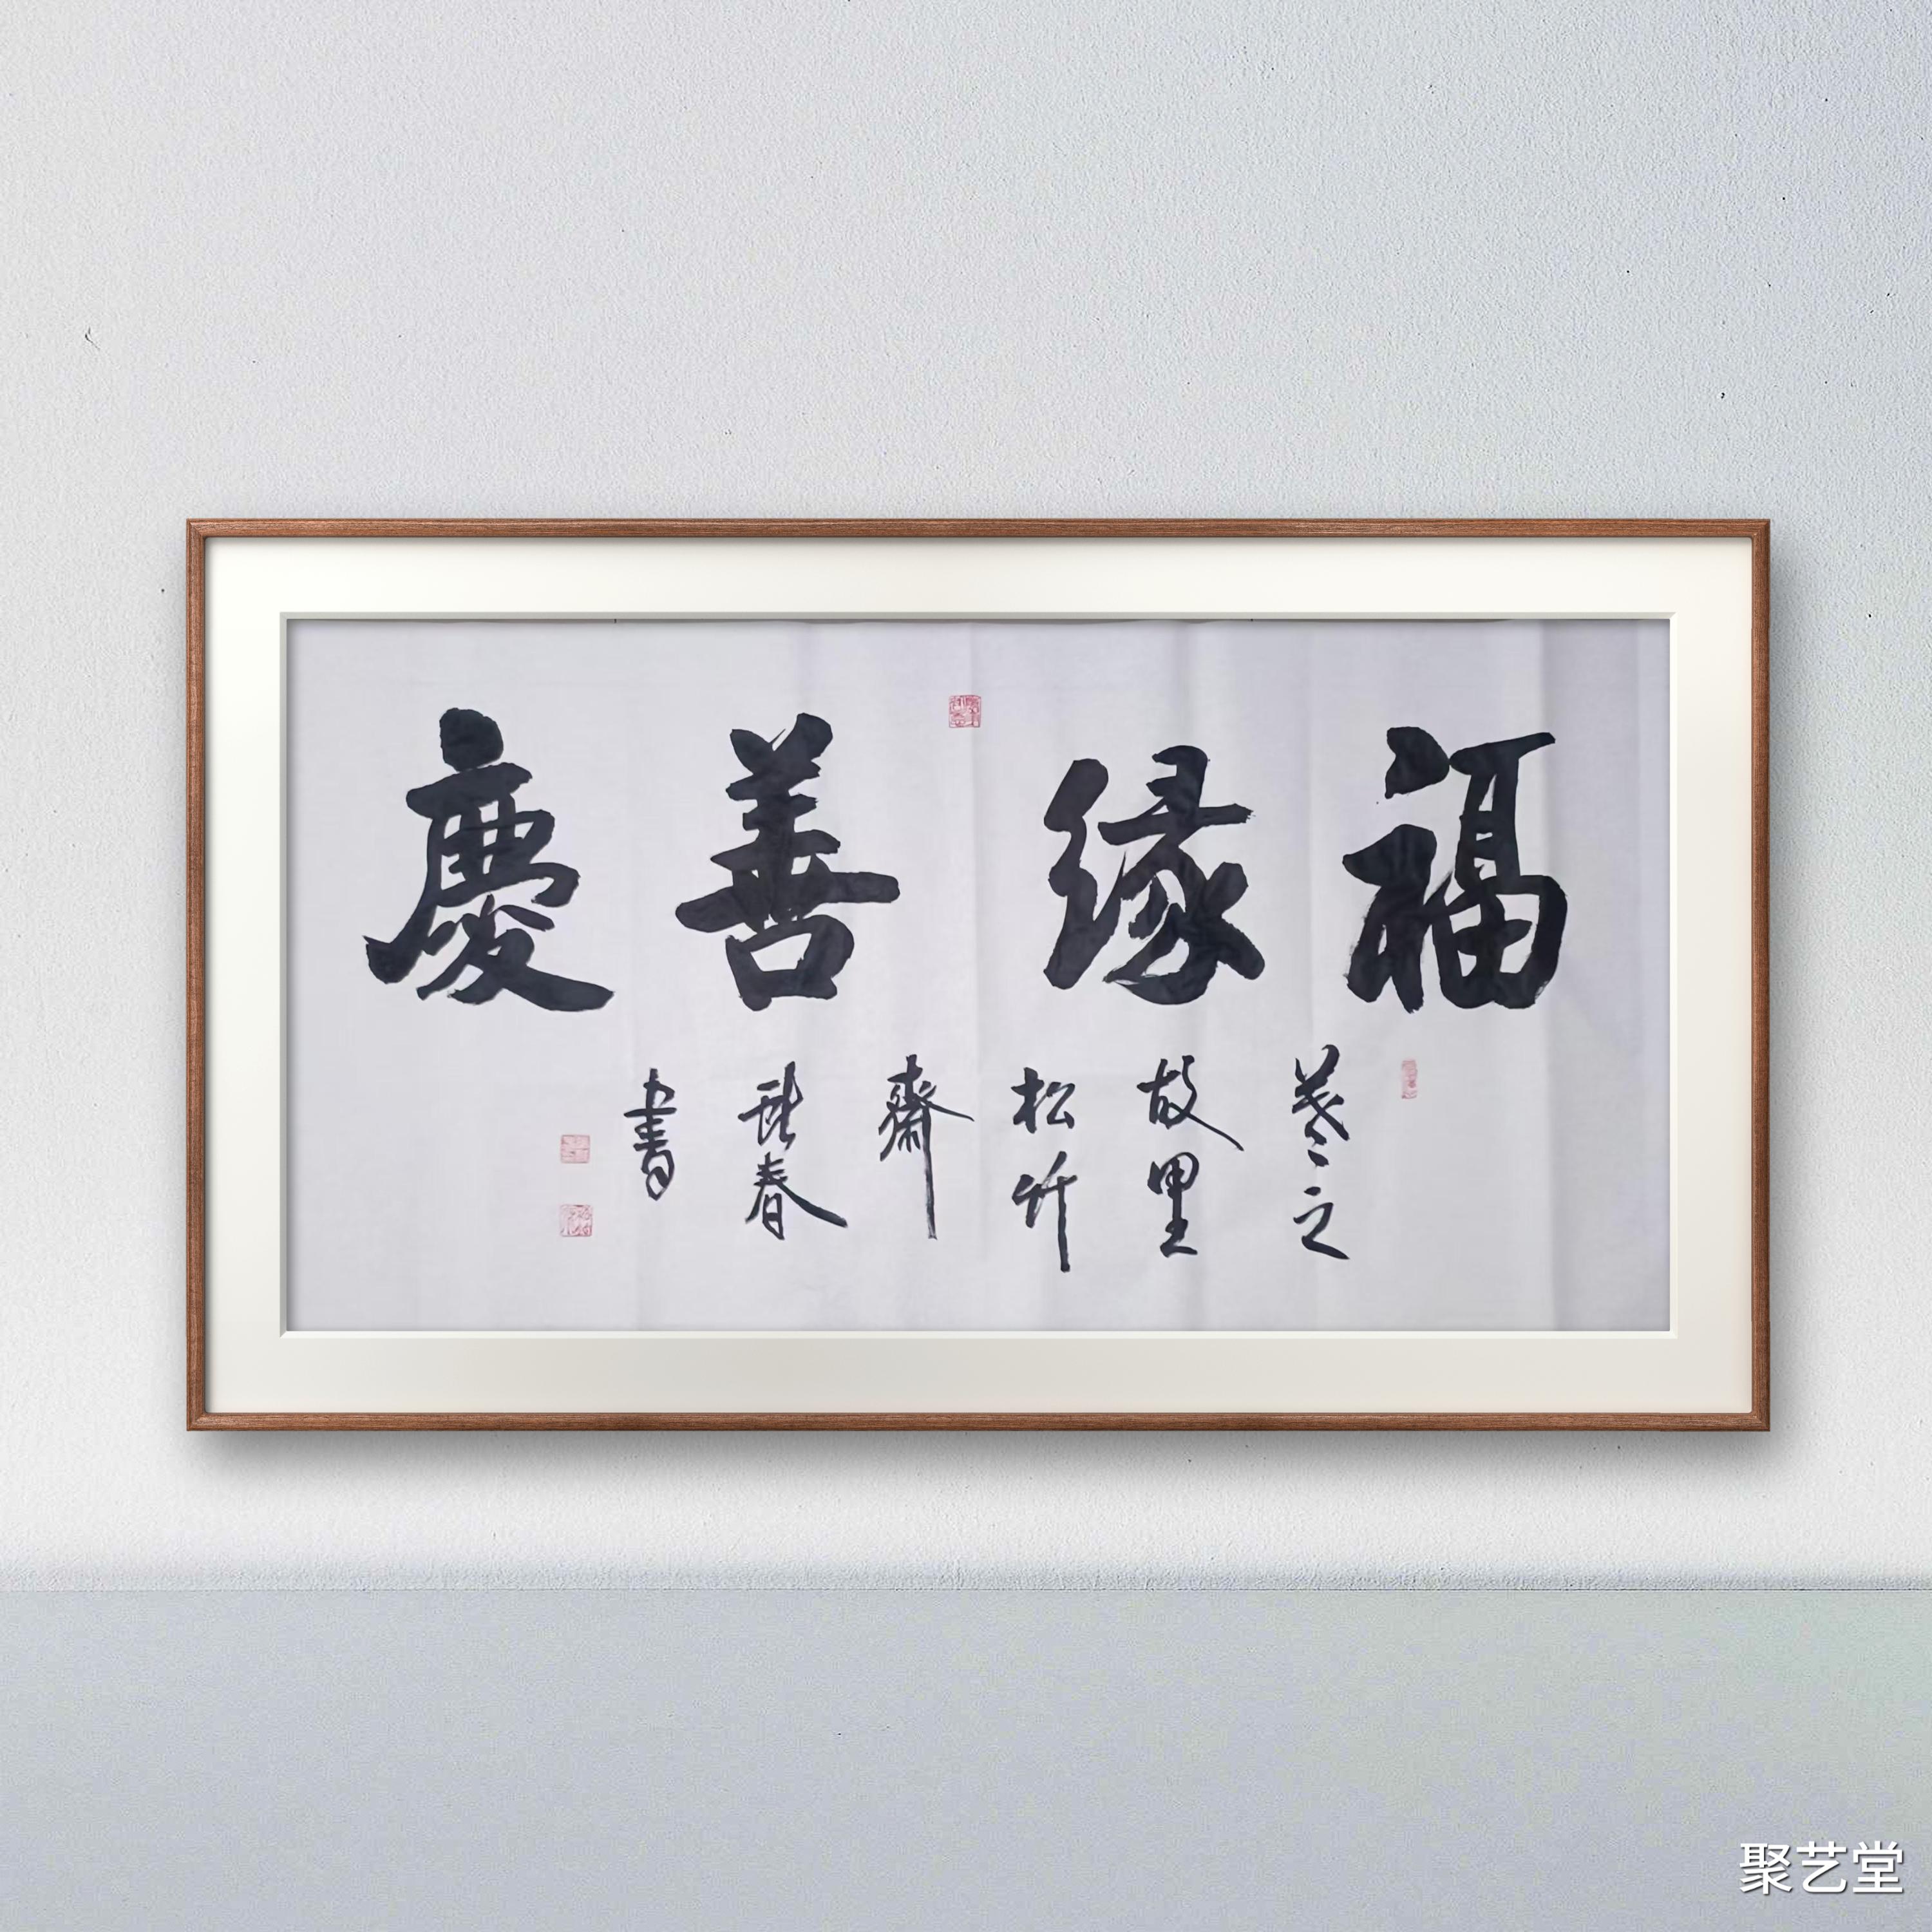 福缘善慶
羲之
故里
松竹
齋
春
書
聚艺堂